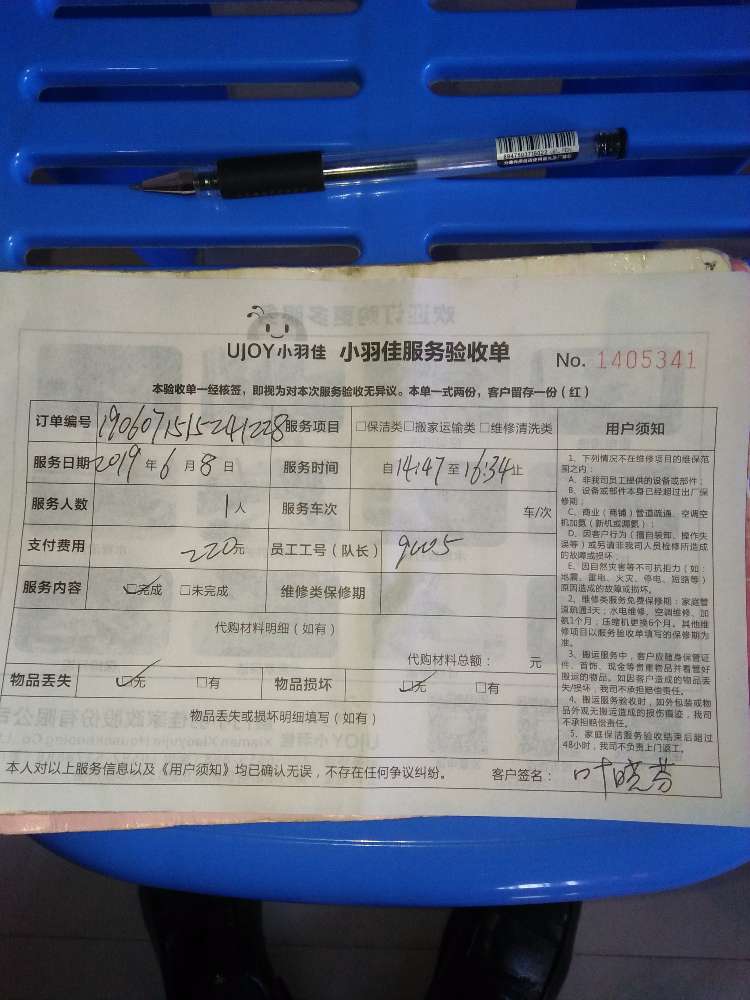 欢迎订购更多服务
UJOY小羽佳 小羽佳服务验收单 No. 1405341
本验收单一经核签,即视为对本次服务验收无异议。本单一式两份,客户留存一份(红)
订单编号 1906071515241228 服务项目 □保洁类□搬家运输类 □维修清洗类
服务日期 2019 年 6 月 8 日 服务时间 自 14:47 至 16:34 止
服务人数 1人 服务车次 车/次
支付费用 220元 员工工号(队长) 9005
服务内容 ☑完成 □未完成 维修类保修期
代购材料明细(如有)
代购材料总额: 元
物品丢失 ☑无 □有 物品损坏 ☑无 □有
物品丢失或损坏明细填写(如有)
用户须知
1、下列情况不在维修项目的维保范
围之内:
A、非我司员工提供的设备或部件;
B、设备或部件本身已经超过出厂保
修期;
C、商业(商铺)管道疏通、空调空
机加氨(新机或漏氨);
D、因客户行为(擅自装卸、操作失
误等)或另请非我司人员检修所造成
的故障或损坏;
E、因自然灾害等不可抗拒力(如:
地震、雷电、火灾、停电、短路等)
原因造成的故障或损坏。
2、维修类服务免费保修期:家庭管
道疏通3天;水电维修、空调维修、加
氨1个月,压缩机更换6个月。其他维
修项目以服务验收单填写的保修期为
准。
3、搬运服务中,客户应随身保管证
件、首饰、现金等贵重物品并看管好
搬运的物品。如因客户造成的物品丢
失/损坏,我司不承担赔偿责任。
4、搬运服务验收时,如外包装或物
品外观无搬运造成的损伤痕迹,我司
不承担赔偿责任。
5、家庭保洁服务验收结束后超过
48小时,我司不负责上门返工。
本人对以上服务信息以及《用户须知》均已确认无误,不存在任何争议纠纷。 客户签名: 叶晓芬